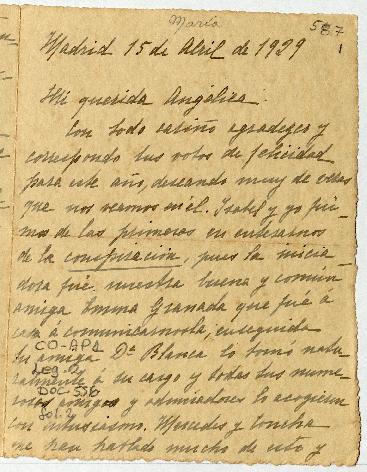 María
587
1
Madrid 15 de Abril de 1929
Mi querida Angélica:
Con todo cariño agradezco y
correspondo tus votos de felicidad
para este año, deseando muy de veras
que nos veamos en él. Isabel y yo fui-
mos de las primeras en enterarnos
de la conspiración, pues la inicia-
dora fué nuestra buena y común
amiga Emma Granada que fue á
casa á comunicárnosla, enseguida
su amiga Dª Blanca lo tomó natu-
CO-APA
ralmente á su cargo y todas sus nume-
Leg. 2
rosas amigas y admiradores lo acogieron
DOC 556
fol. 2
con entusiasmo. Mercedes y Concha
me han hablado mucho de esto y